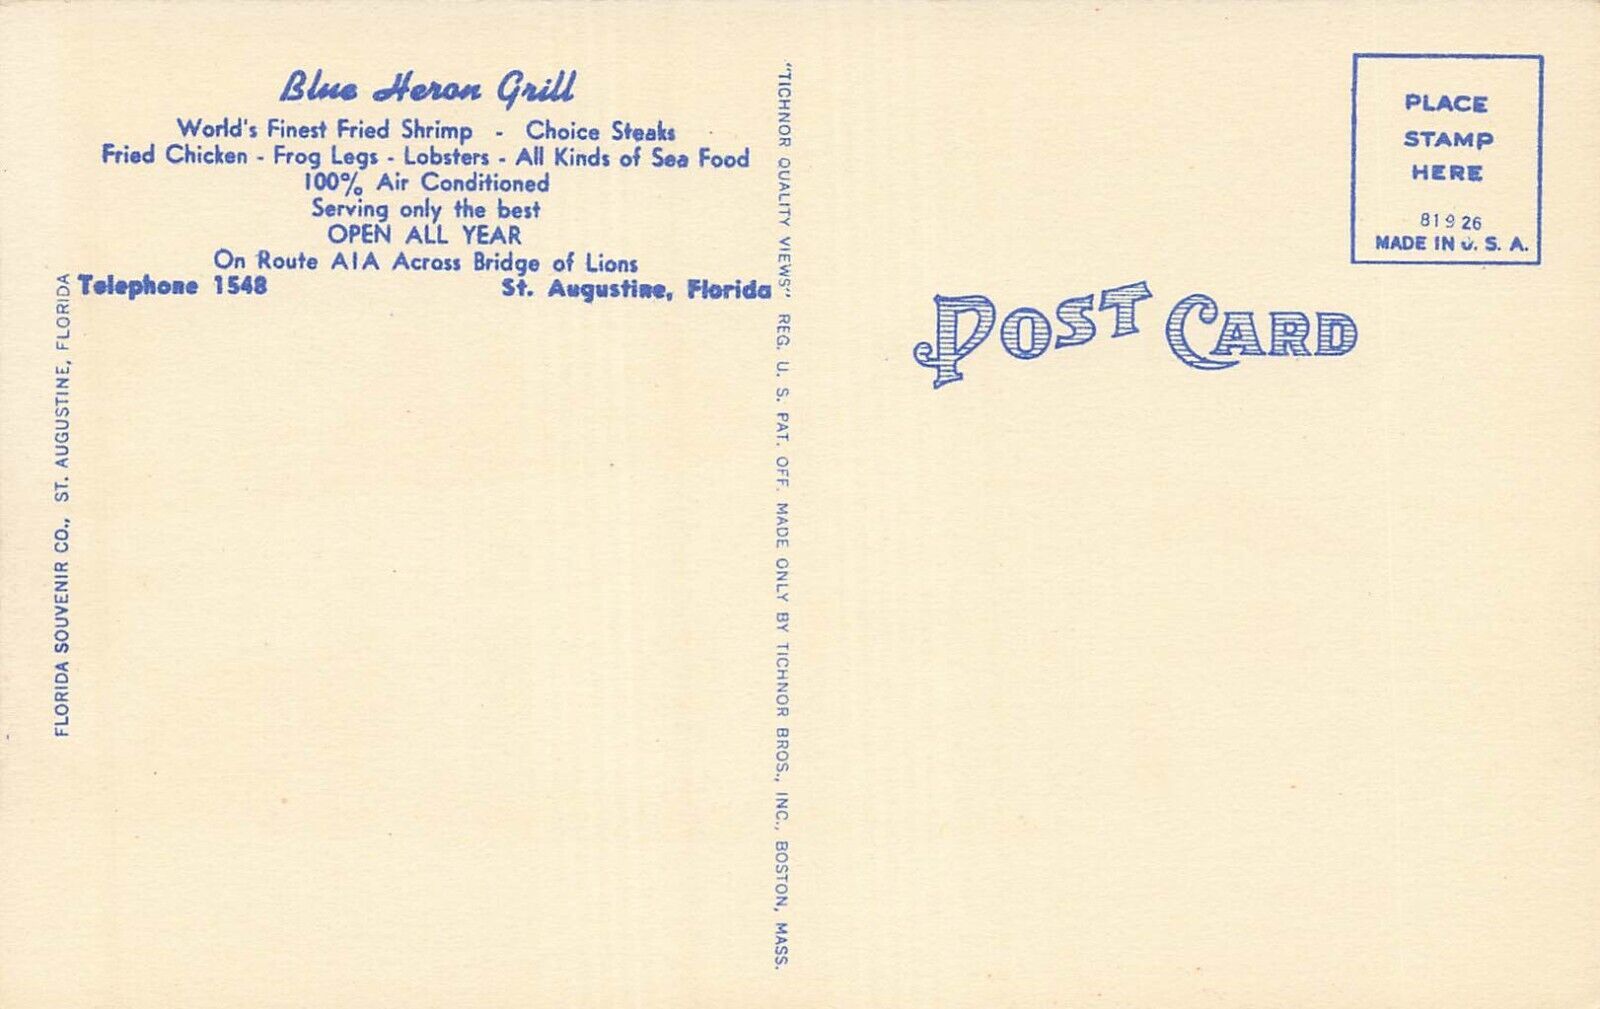 Blue Heron Grill
World's Finest Fried Shrimp - Choice Steaks
Fried Chicken - Frog Legs - Lobsters - All Kinds of Sea Food
100% Air Conditioned
Serving only the best
OPEN ALL YEAR
On Route A1A Across Bridge of Lions
Telephone 1548 St. Augustine, Florida
FLORIDA SOUVENIR CO., ST. AUGUSTINE, FLORIDA
"TICHNOR QUALITY VIEWS" REG. U. S. PAT. OFF. MADE ONLY BY TICHNOR BROS., INC., BOSTON, MASS.
POST CARD
PLACE
STAMP
HERE
81926
MADE IN U. S. A.